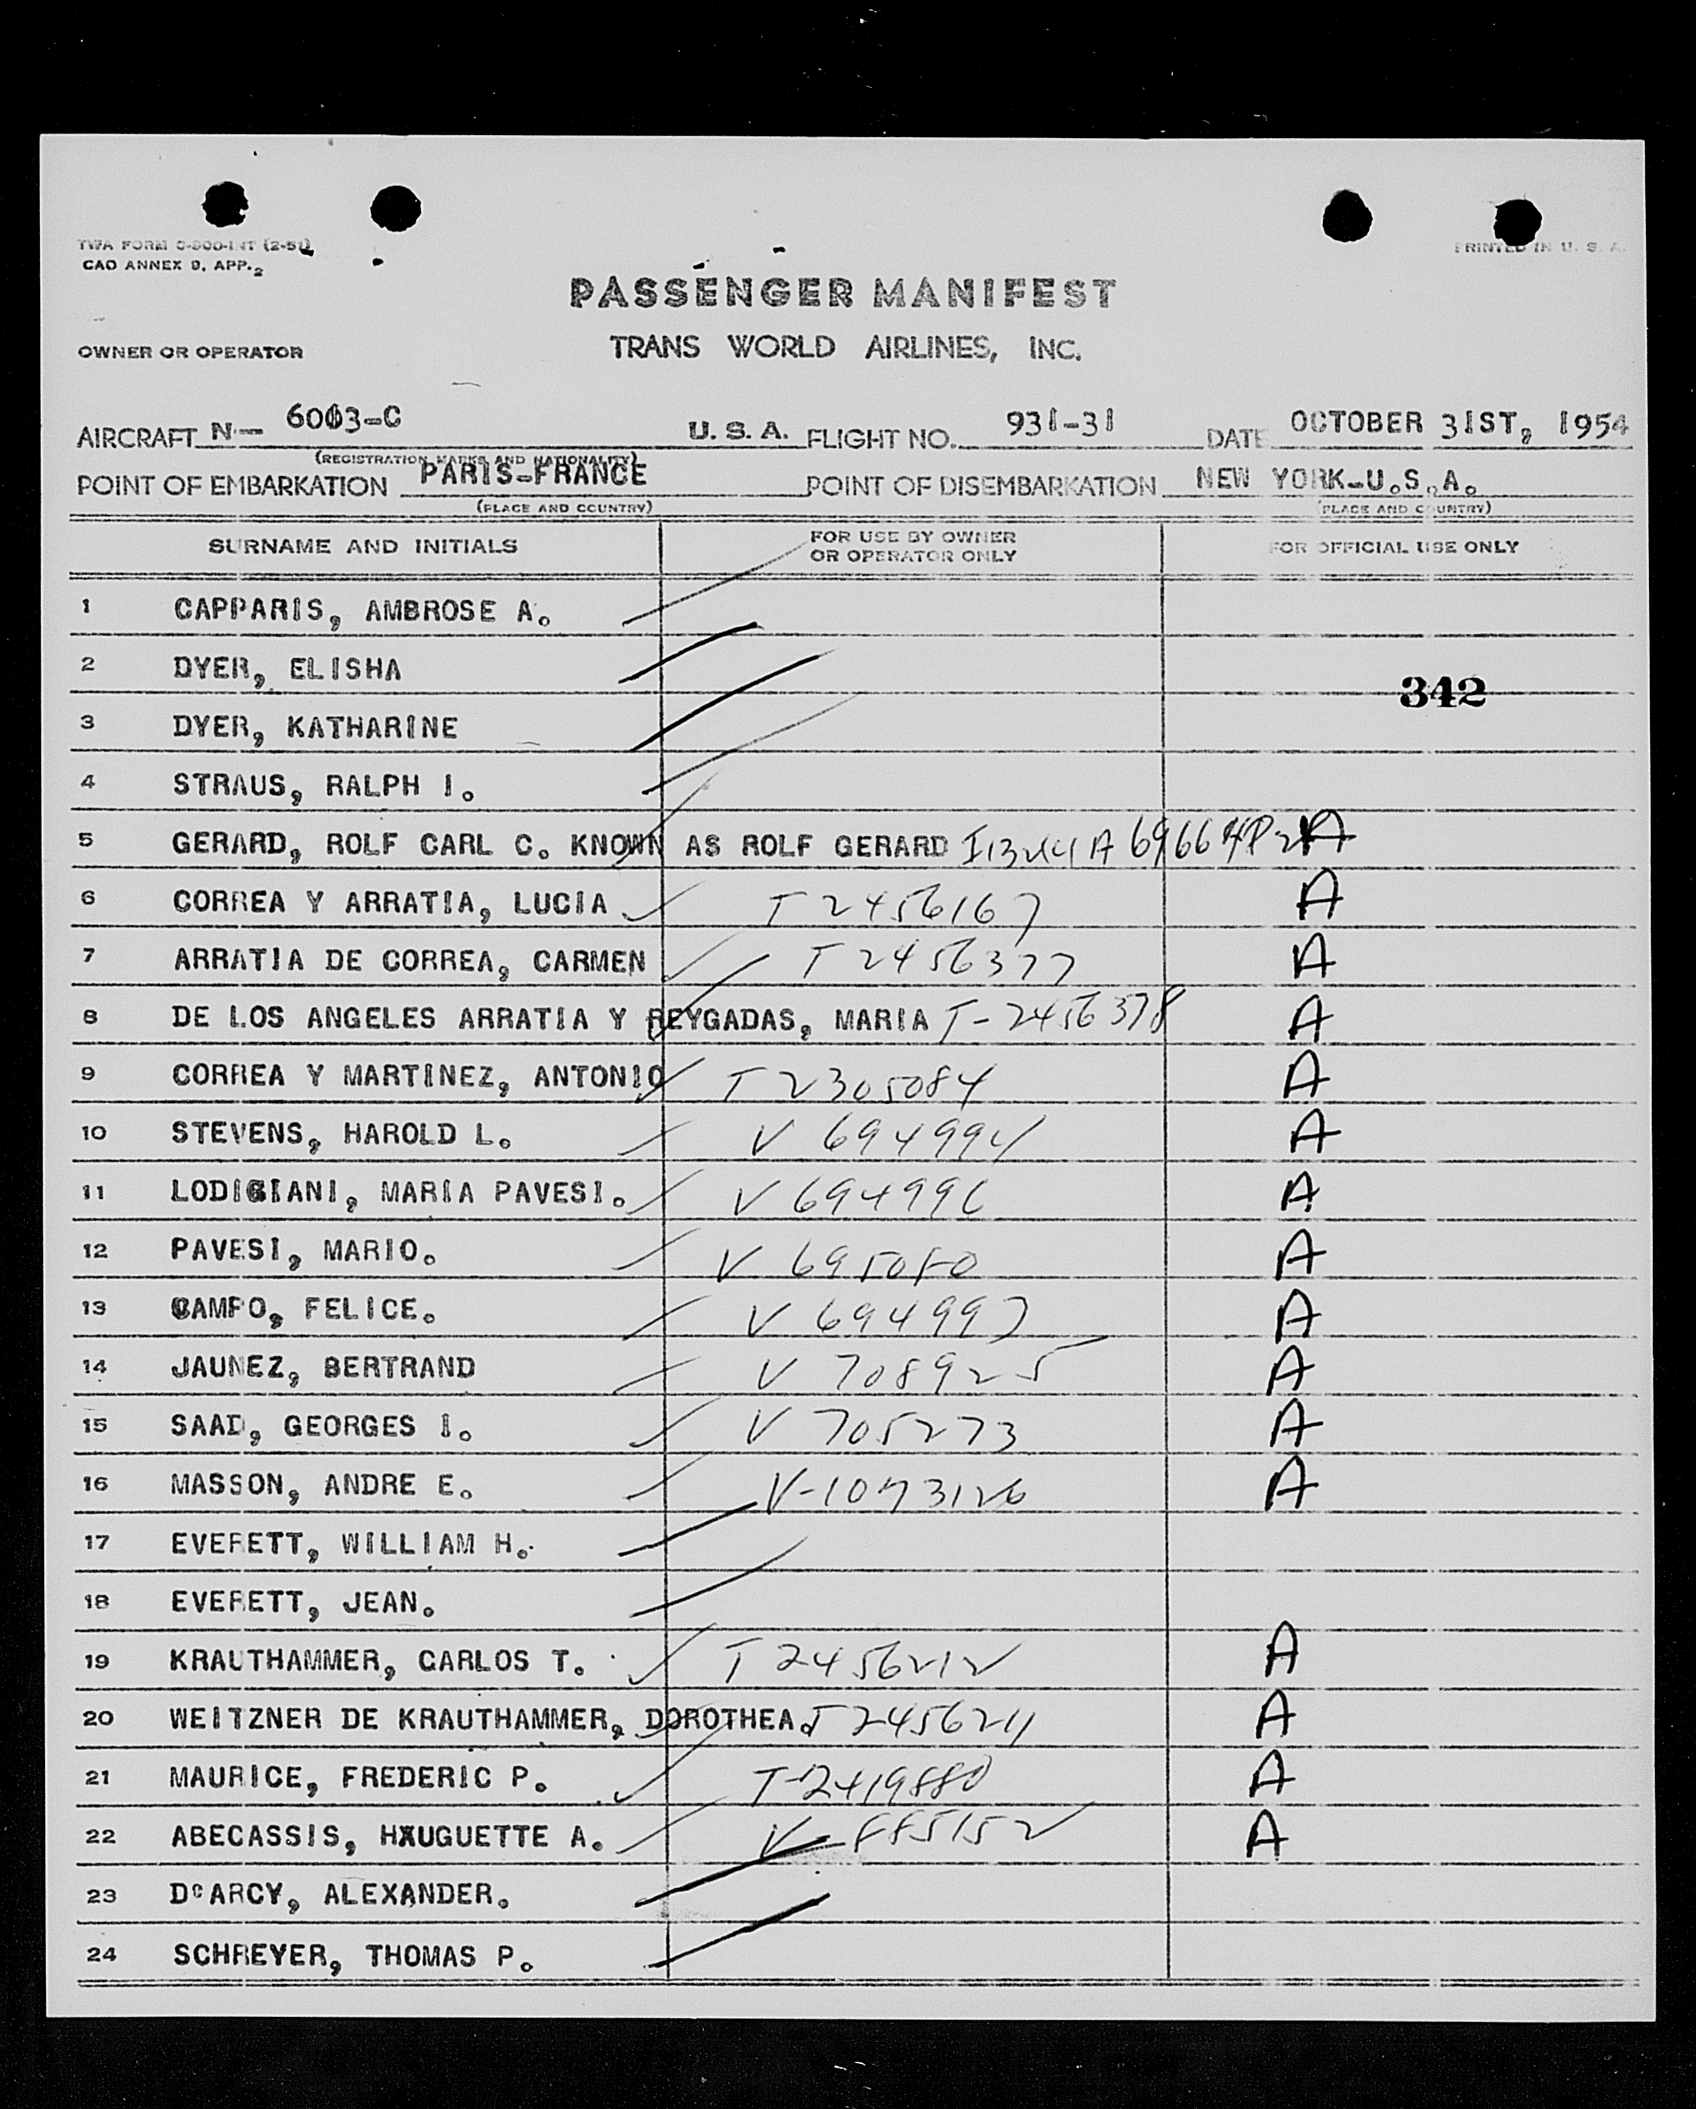 TWA FORM C-800-INT (2-51)
CAO ANNEX 9, APP. 2
PRINTED IN U. S. A.
PASSENGER MANIFEST
OWNER OR OPERATOR TRANS WORLD AIRLINES, INC.
AIRCRAFT N- 6003-C U. S. A. FLIGHT NO. 931-31 DATE OCTOBER 31ST, 1954
(REGISTRATION MARKS AND NATIONALITY)
POINT OF EMBARKATION PARIS-FRANCE POINT OF DISEMBARKATION NEW YORK-U.S.A.
(PLACE AND COUNTRY) (PLACE AND COUNTRY)
SURNAME AND INITIALS FOR USE BY OWNER OR OPERATOR ONLY FOR OFFICIAL USE ONLY
1 CAPPARIS, AMBROSE A.
2 DYER, ELISHA
342
3 DYER, KATHARINE
4 STRAUS, RALPH I.
5 GERARD, ROLF CARL C. KNOWN AS ROLF GERARD A
6 CORREA Y ARRATIA, LUCIA T 2456167 A
7 ARRATIA DE CORREA, CARMEN T 2456377 A
8 DE LOS ANGELES ARRATIA Y REYGADAS, MARIA T-2456378 A
9 CORREA Y MARTINEZ, ANTONIO T 2305084 A
10 STEVENS, HAROLD L. V 694994 A
11 LODIGIANI, MARIA PAVESI. V 694996 A
12 PAVESI, MARIO. V 695080 A
13 CAMPO, FELICE. V 694997 A
14 JAUNEZ, BERTRAND V 708925 A
15 SAAD, GEORGES I. V 705273 A
16 MASSON, ANDRE E. V-1073126 A
17 EVERETT, WILLIAM H.
18 EVERETT, JEAN.
19 KRAUTHAMMER, CARLOS T. T 2456212 A
20 WEITZNER DE KRAUTHAMMER, DOROTHEA. T 2456211 A
21 MAURICE, FREDERIC P. T-2419880 A
22 ABECASSIS, HXUGUETTE A. V-885152 A
23 D'ARCY, ALEXANDER.
24 SCHREYER, THOMAS P.